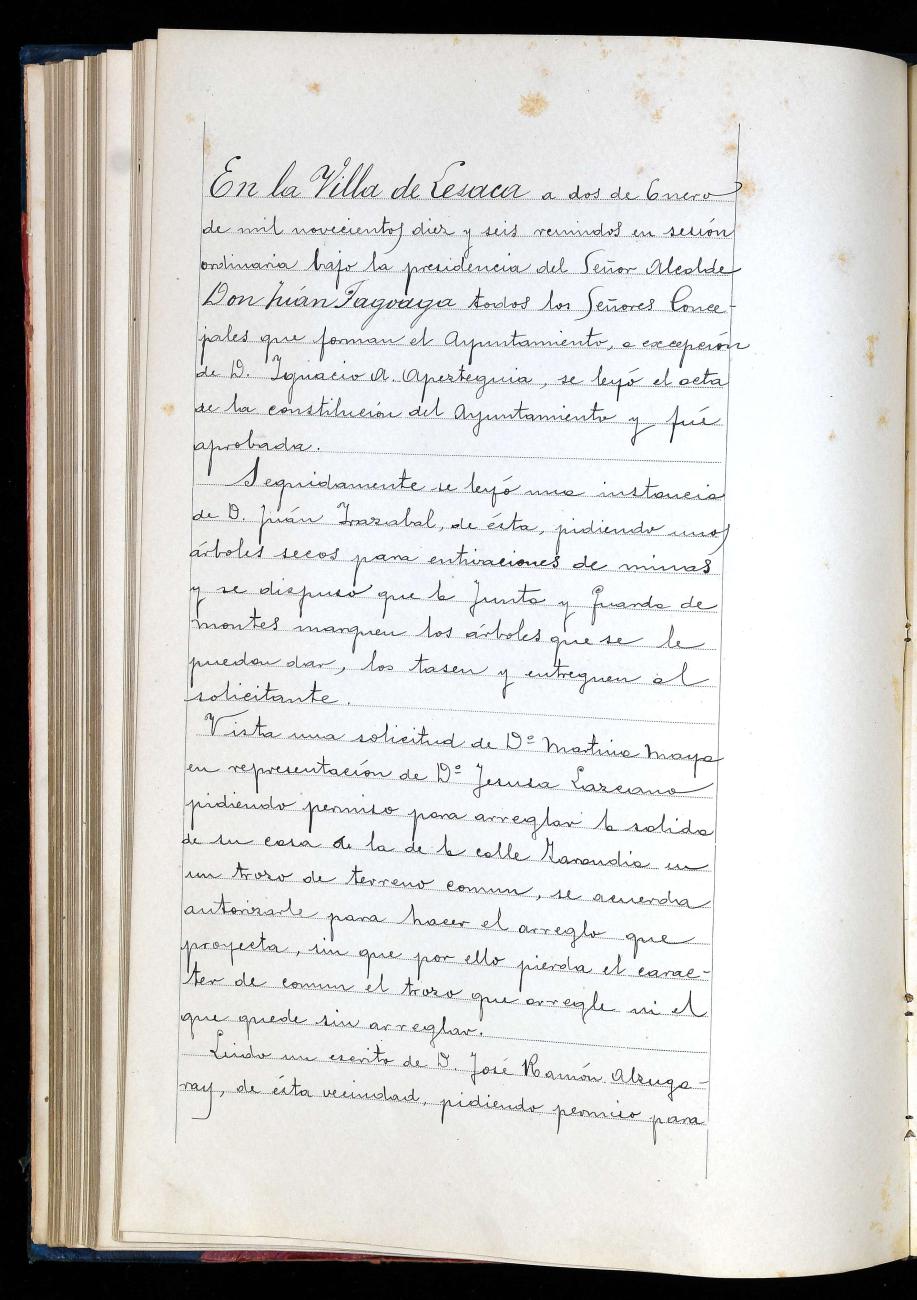 En la Villa de Lesaca a dos de Enero
de mil novecientos diez y seis reunidos en sesión
ordinaria bajo la presidencia del Señor Alcalde
Don Juán Tagoaga todos los Señores Conce-
jales que forman el Ayuntamiento, a excepción
de D. Ignacio A. Apezteguia, se leyó el acta
de la constitución del Ayuntamiento y fué
aprobada.
Seguidamente se leyó una instancia
de D. Juán Irazabal, de ésta, pidiendo unos
árboles secos para entivaciones de minas
y se dispuso que la Junta y Guarda de
montes marquen los árboles que se le
puedan dar, los tasen y entreguen al
solicitante.
Vista una solicitud de Dª Martina Maya
en representación de Dª Jesusa Lazcano
pidiendo permiso para arreglar la salida
de su casa a la de la calle Zarandia en
un trozo de terreno comun, se acuerda
autorizarle para hacer el arreglo que
proyecta, sin que por ello pierda el carac-
ter de comun el trozo que arregle ni el
que quede sin arreglar.
Leido un escrito de D. José Ramón Alzuga-
ray, de ésta vecindad, pidiendo permiso para